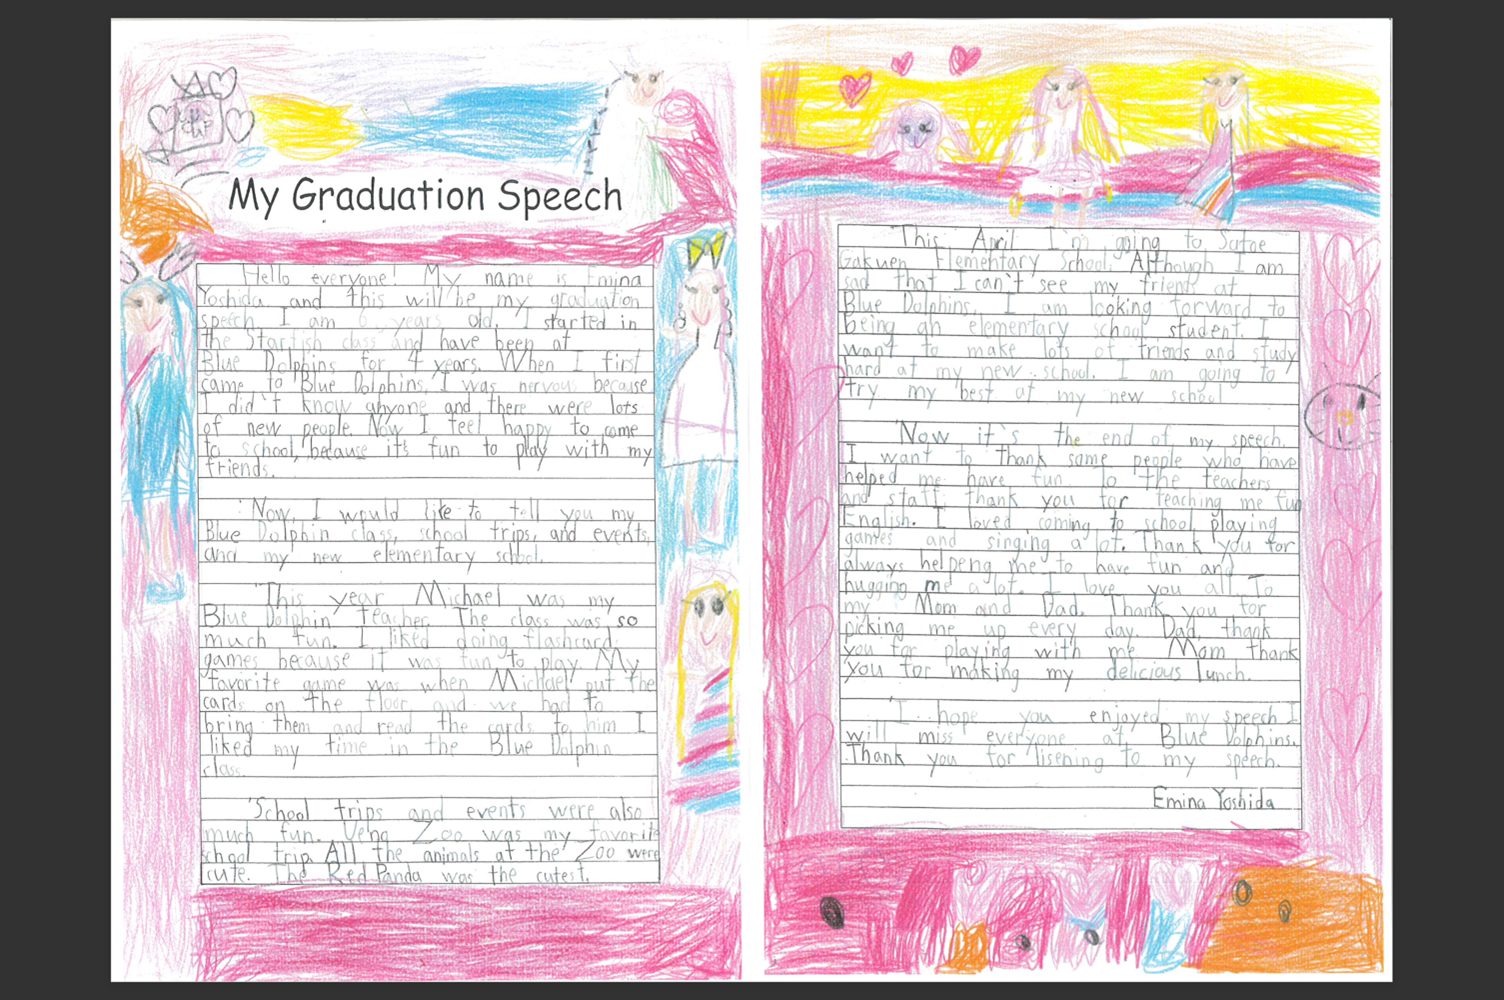 My Graduation Speech
Hello everyone! My name is Emina
Yoshida and this will be my graduation
speech I am 6 years old. I started in
the Starfish class and have been at
Blue Dolphins for 4 years. When I first
came to Blue Dolphins, I was nervous because
I didn't know anyone and there were lots
of new people. Now I feel happy to come
to school, because it's fun to play with my
friends.
Now, I would like to tell you my
Blue Dolphin class, school trips, and events,
and my new elementary school.
This year Michael was my
Blue Dolphin teacher. The class was so
much fun. I liked doing flashcard
games because it was fun to play. My
favorite game was when Michael put the
cards on the floor and we had to
bring them and read the cards to him I
liked my time in the Blue Dolphin
class.
School trips and events were also
much fun. Ueno Zoo was my favorite
school trip. All the animals at the Zoo were
cute. The Red Panda was the cutest.
This April I'm going to
Gakuen Elementary School. Although I am
sad that I can't see my friends at
Blue Dolphins, I am looking forward to
being an elementary school student. I
want to make lots of friends and study
hard at my new school. I am going to
try my best at my new school
Now it's the end of my speech.
I want to thank some people who have
helped me have fun. To the teachers
and staff, thank you for teaching me fun
English. I loved coming to school, playing
games and singing a lot. Thank you for
always helpeng me to have fun and
hugging me a lot. I love you all. To
my Mom and Dad. Thank you for
picking me up every day. Dad, thank
you for playing with me. Mom thank
you for making my delicious lunch.
I hope you enjoyed my speech I
will miss everyone at Blue Dolphins.
Thank you for lisening to my speech.
Emina Yoshida